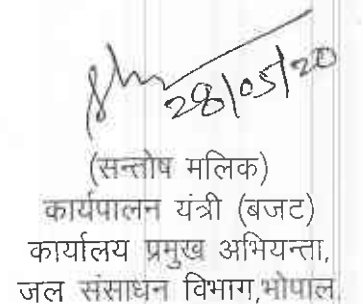 28/05/20
(सन्तोष मलिक)
कार्यपालन यंत्री (बजट)
कार्यालय प्रमुख अभियन्ता,
जल संसाधन विभाग,भोपाल